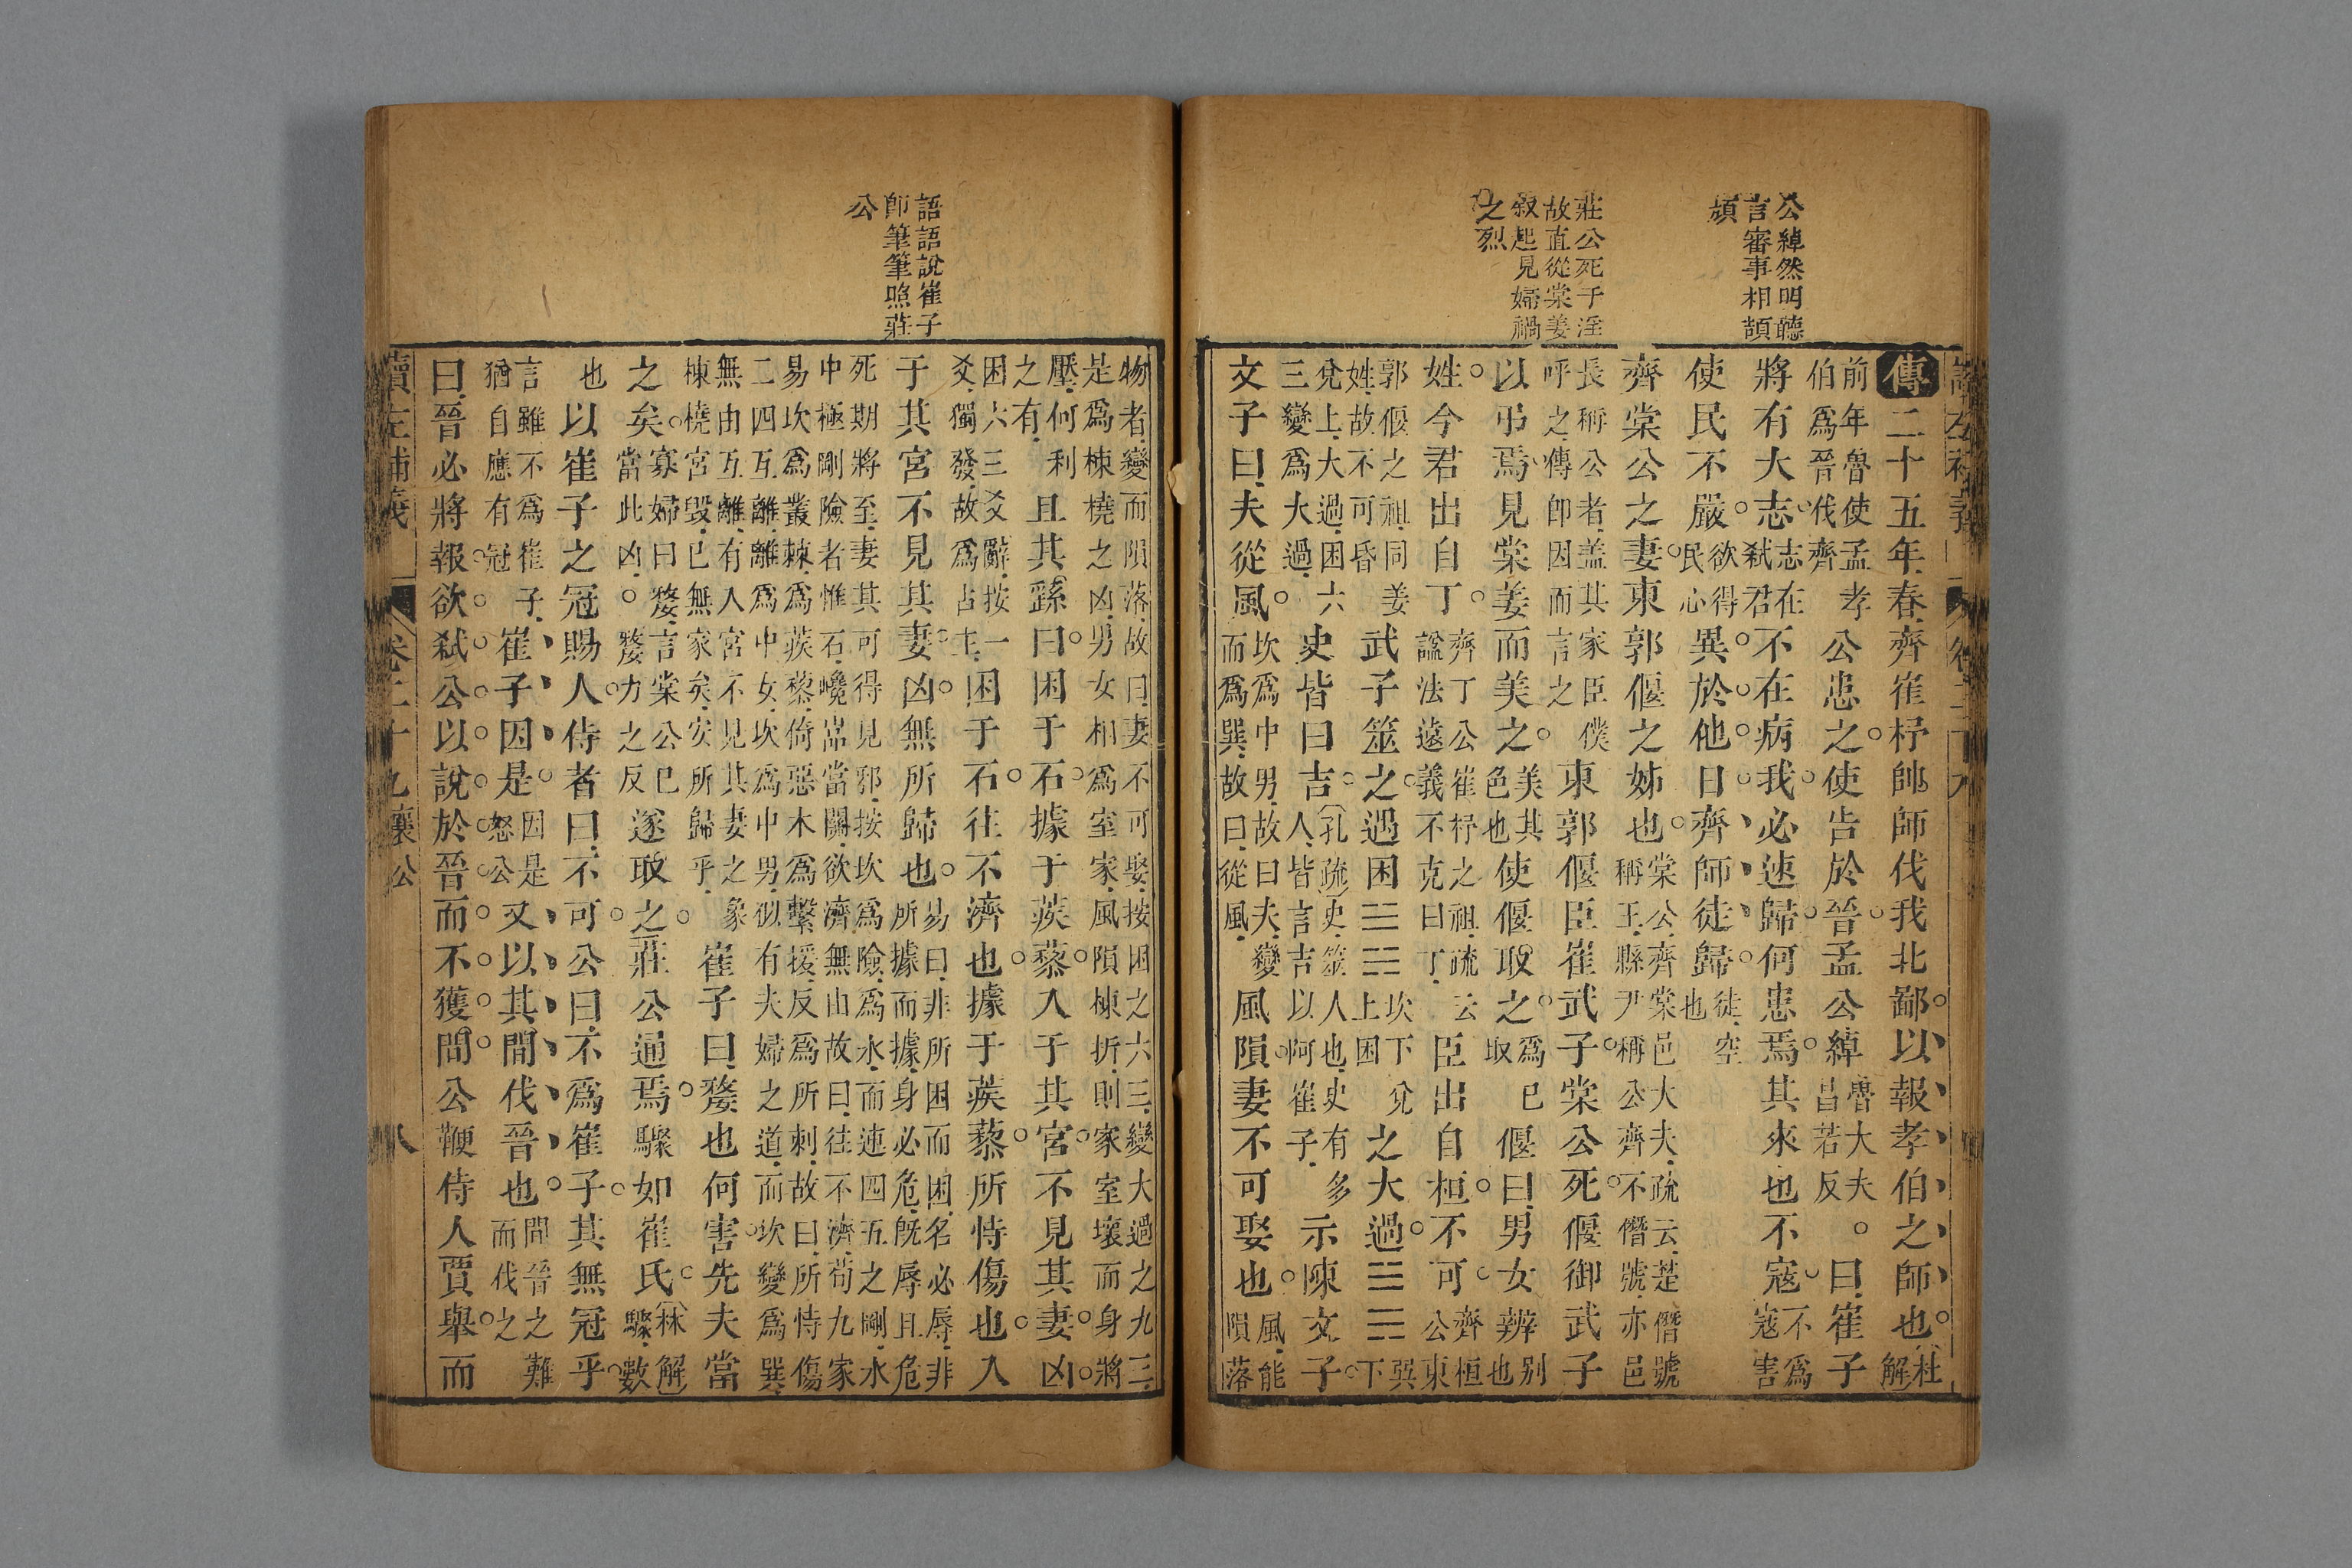 公綽然明聽
言審事相頡
頏
莊公死于淫
故直從棠姜
叙起見婦禍
之烈
傳二十五年春齊崔杼帥師伐我北鄙以報孝伯之師也杜解
前年魯使孟孝伯爲晉伐齊公患之使告於晉孟公綽魯大夫昌若反曰崔子
將有大志志在弑君不在病我必速歸何患焉其來也不寇不爲寇害
使民不嚴欲得民心異於他日齊師徒歸徒空也
齊棠公之妻東郭偃之姊也棠公齊棠邑大夫疏云楚僭號稱王縣尹稱公齊不僭號亦邑
長稱公者盖其家臣僕呼之傳卽因而言之東郭偃臣崔武子棠公死偃御武子
以弔焉見棠姜而美之美其色也使偃取之爲己取偃曰男女辨別也
姓今君出自丁齊丁公崔杼之祖疏云諡法遠義不克曰丁臣出自桓不可齊桓公東
郭偃之祖同姜姓故不可昏武子筮之遇困䷮坎下兌上困之大過䷛巽下
兌上大過困六三變爲大過史皆曰吉孔疏史筮人也史有多人皆言吉以阿崔子示陳文子
文子曰夫從風坎爲中男故曰夫變而爲巽故曰從風風隕妻不可娶也風能隕落
語語說崔子
卽筆筆照莊
公
物者變而隕落故曰妻不可娶按困之六三變大過之九三是爲棟橈之凶男女相爲室家風隕棟折則家室壞而身將
壓何利之有且其繇曰困于石據于蒺藜入于其宮不見其妻凶
困六三爻辭按一爻獨發故爲占主困于石往不濟也據于蒺藜所恃傷也入
于其宮不見其妻凶無所歸也易曰非所困而困名必辱非所據而據身必危旣辱且危
死期將至妻其可得見邪按坎爲險爲水而連四五之剛水中極剛險者惟石巉嵓當關欲濟無由故曰往不濟苟九家
易坎爲叢棘爲蒺藜倚惡木爲繫援反爲所刺故曰所恃傷二四互離離爲中女坎爲中男似有夫婦之道而坎變爲巽
無由互離有人宮不見其妻之象棟橈宮毀已無家矣安所歸乎崔子曰嫠也何害先夫當
之矣寡婦曰嫠言棠公已當此凶嫠力之反遂取之莊公通焉驟如崔氏林解驟數
也以崔子之冠賜人侍者曰不可公曰不爲崔子其無冠乎
言雖不爲崔子猶自應有冠崔子因是因是怒公又以其間伐晉也間晉之難而伐之
曰晉必將報欲弑公以說於晉而不獲間公鞭侍人賈舉而
讀左補義 卷二十九襄公 八